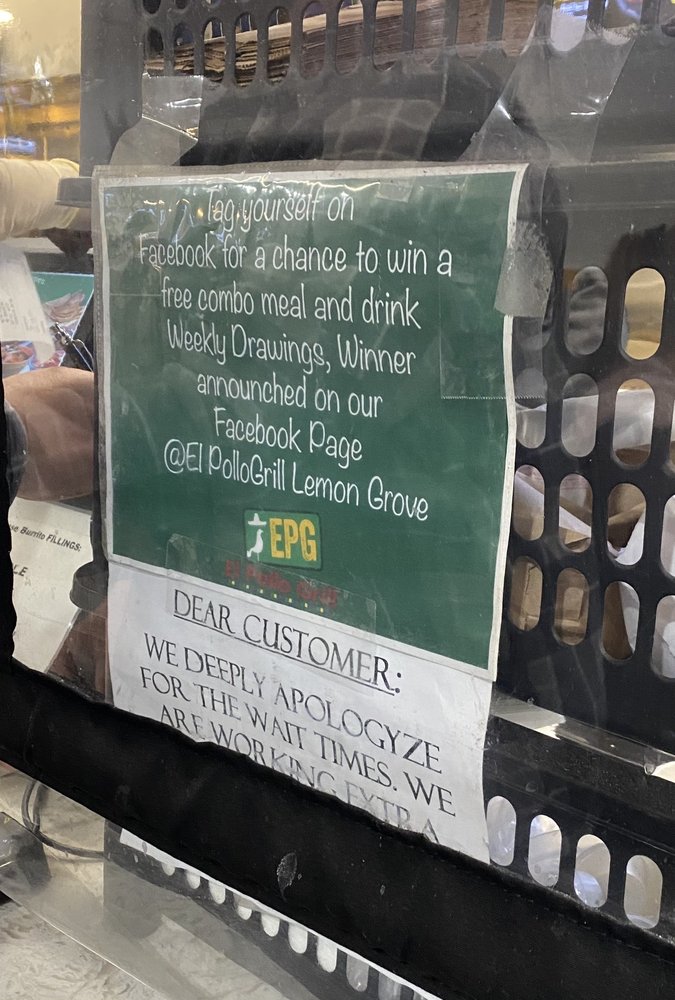 Tag yourself on
Facebook for a chance to win a
free combo meal and drink
Weekly Drawings, Winner
announched on our
Facebook Page
@El PolloGrill Lemon Grove
EPG
El Pollo Grill
DEAR CUSTOMER:
WE DEEPLY APOLOGYZE
FOR THE WAIT TIMES. WE
ARE WORKING EXTRA
Burrito FILLINGS: